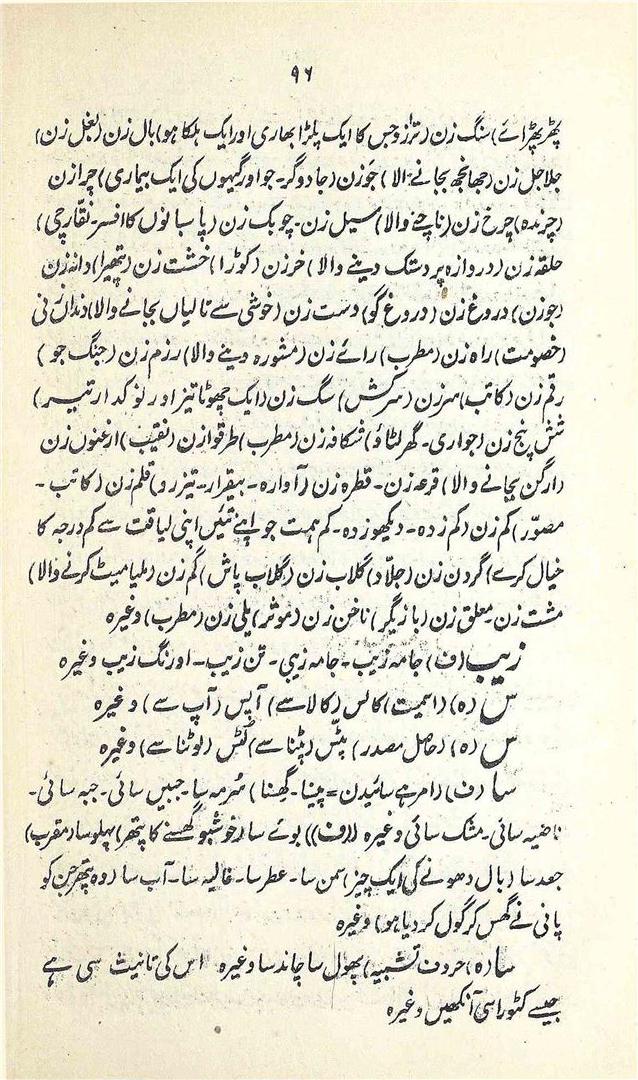 ۹۶
پھڑپھڑائے) سنگ زن (ترازو جس کا ایک پلڑا بھاری اور ایک ہلکا ہو) بال زن (بغل زن)
جلاجل زن (جھانجھ بجانے والا) جَوزن (جادوگر۔ جو اور گیہوں کی ایک بیماری) چرازن
(چرندہ) چرخ زن (ناچنے والا) سیل زن۔ چوبک زن (پاسبانوں کا افسر۔ نقارچی)
حلقہ زن (دروازہ پر دستک دینے والا) خرزن (کوڑا) خشت زن (تھپیرا) دانہ زن
(جوزن) دروغ زن (دروغ گو) دست زن (خوشی سے تالیاں بجانے والا) دنداں زنی
(خصومت) راہ زن (مطرب) رائے زن (مشورہ دینے والا) رزم زن (جنگ جو)
رقم زن (کاتب) سرزن (سرکش) سگ زن (ایک چھوٹا تیز اور نوکدار تیر)
شش پنج زن (جواری۔ گھر لٹاؤ) شگافہ زن (مطرب) طرقوازن (نقیب) ارغنوں زن
(ارگن بجانے والا) قرعہ زن۔ قطرہ زن (آوارہ۔ بیقرار۔ تیزرو) قلم زن (کاتب۔
مصوّر) کم زن (کم زدہ۔ دیکھو زدہ۔ کم ہمت جو اپنے تئیں اپنی لیاقت سے کم درجہ کا
خیال کرے) گردن زن (جلّاد) گلاب زن (گلاب پاش) گم زن (ملیامیٹ کرنے والا)
مشت زن۔ معلق زن (بازیگر) ناخن زن (موثر) پلی زن (مطرب) وغیرہ
زیب (ف) جامہ زیب۔ جامہ زیبی۔ تن زیب۔ اورنگ زیب وغیرہ
س (ہ) (اسمیت) کالس (کالا سے) آپس (آپ سے) وغیرہ
س (ہ) (حاصل مصدر) پٹس (پٹنا سے) لُٹس (لوٹنا سے) وغیرہ
سا (ف) (امر ہے سائیدن = پیسنا۔ گھسنا) سُرمہ سا۔ جبیں سائی۔ جبہ سائی۔
ناصیہ سائی۔ مشک سائی وغیرہ ((ف)) بوئے سا (خوشبو گھسنے کا پتھر) پہلو سا (مقرب)
جعد سا (بال دھونے کی ایک چیز) سمن سا۔ عطر سا۔ غالیہ سا۔ آب سا (وہ پتھر جن کو
پانی نے گھس کر گول کر دیا ہو) وغیرہ
سا (ہ) (حروف تشبیہ) پھول سا چاند سا وغیرہ اس کی تانیث سی ہے
جیسے کٹورا سی آنکھیں وغیرہ